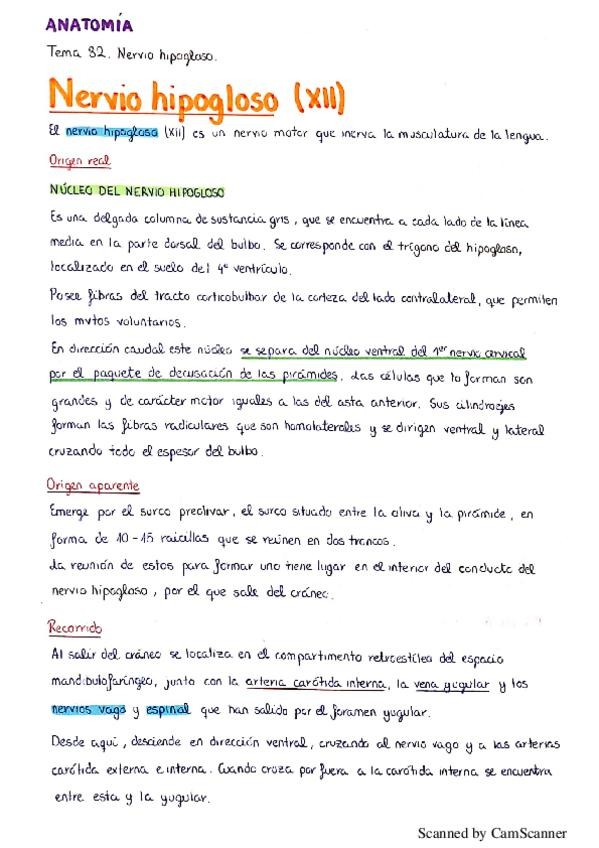 ANATOMÍA
Tema 32. Nervio hipogloso.
Nervio hipogloso (XII)
El nervio hipogloso (XII) es un nervio motor que inerva la musculatura de la lengua.
Origen real
NÚCLEO DEL NERVIO HIPOGLOSO
Es una delgada columna de sustancia gris, que se encuentra a cada lado de la línea
media en la parte dorsal del bulbo. Se corresponde con el trígono del hipogloso,
localizado en el suelo del 4º ventrículo.
Posee fibras del tracto corticobulbar de la corteza del lado contralateral, que permiten
los mvtos voluntarios.
En dirección caudal este núcleo se separa del núcleo ventral del 1er nervio cervical
por el paquete de decusación de las pirámides. Las células que lo forman son
grandes y de carácter motor iguales a las del asta anterior. Sus cilindroejes
forman las fibras radiculares que son homolaterales y se dirigen ventral y lateral
cruzando todo el espesor del bulbo.
Origen aparente
Emerge por el surco preolivar, el surco situado entre la oliva y la pirámide, en
forma de 10-15 raicillas que se reúnen en dos troncos.
La reunión de estos para formar uno tiene lugar en el interior del conducto del
nervio hipogloso, por el que sale del cráneo.
Recorrido
Al salir del cráneo se localiza en el compartimento retroestíleo del espacio
mandibulofaríngeo, junto con la arteria carótida interna, la vena yugular y los
nervios vago y espinal que han salido por el foramen yugular.
Desde aquí, desciende en dirección ventral, cruzando al nervio vago y a las arterias
carótida externa e interna. Cuando cruza por fuera a la carótida interna se encuentra
entre esta y la yugular.
Scanned by CamScanner